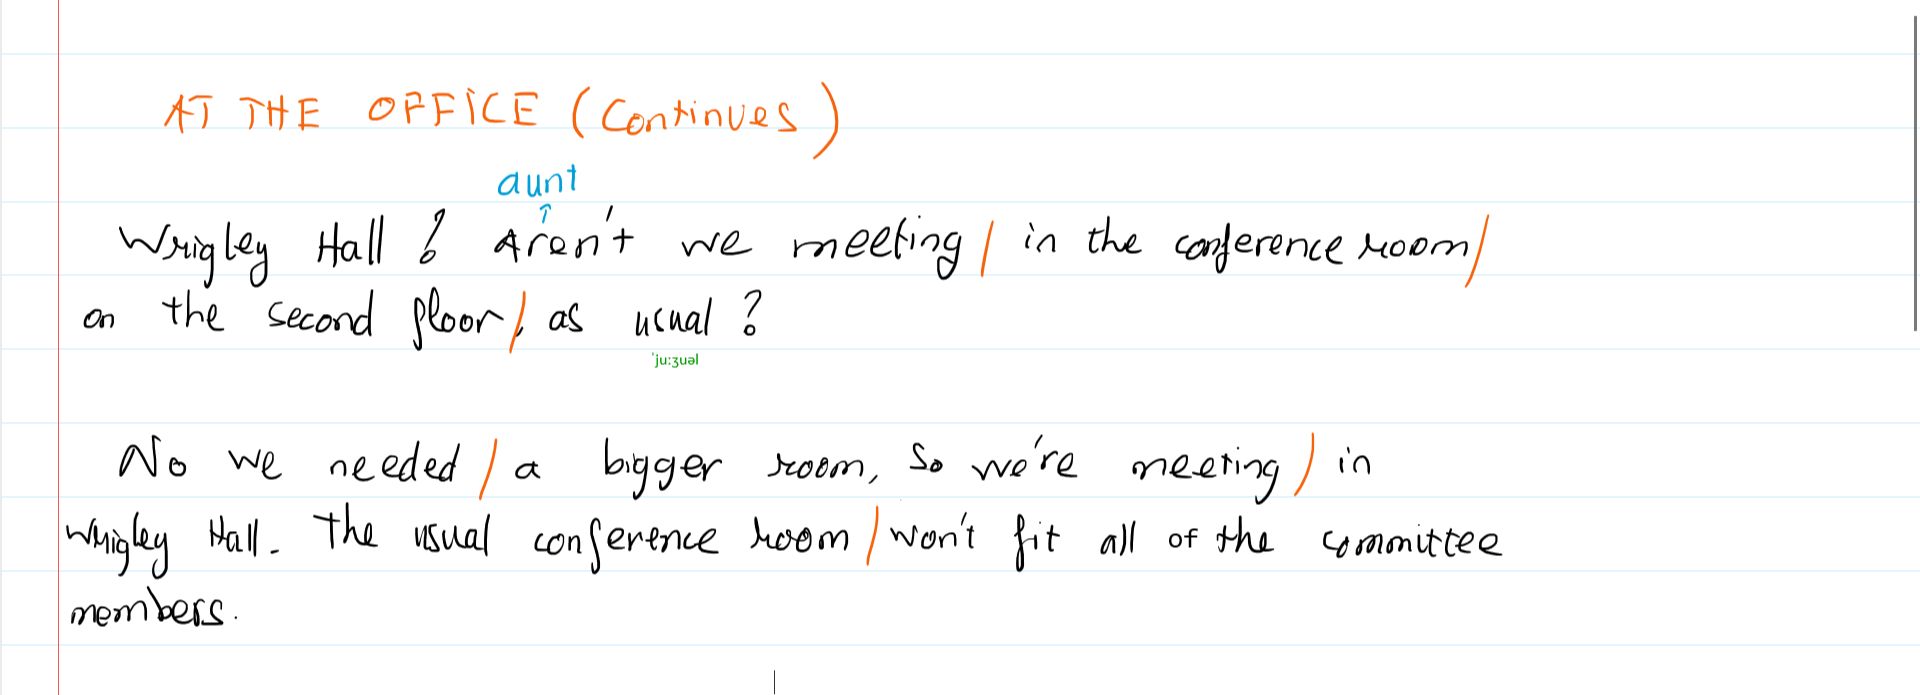 AT THE OFFICE (Continues)
aunt
↑
Wrigley Hall ? Aren't we meeting / in the conference room /
on the second floor /, as usual ?
ˈju:ʒuəl
No we needed / a bigger room, So we're meeting / in
Wrigley Hall. The usual conference room / won't fit all of the committee
members.